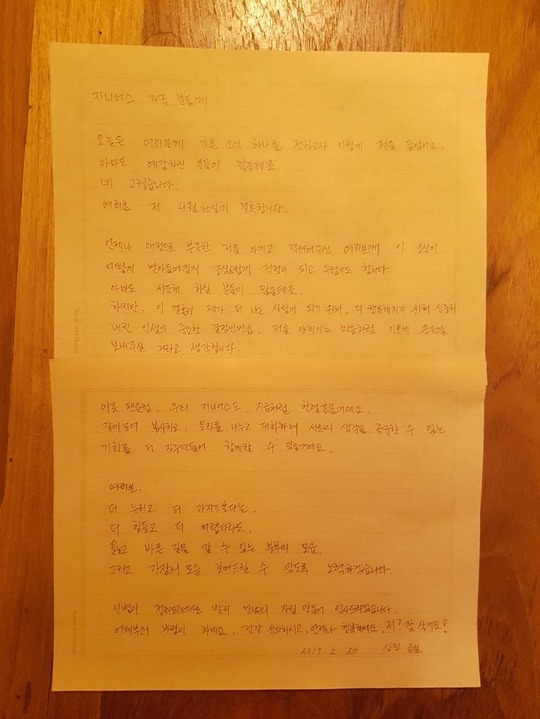 지니어스 가족 분들께
오늘은 여러분께 기쁜 소식 하나를 전하고자 이렇게 펜을 들었어요.
아마도 예감하신 분들이 많을테죠
네 그렇습니다.
여러분 저 4월 30일에 결혼합니다.
언제나 애정으로 부족한 저를 아끼고 걱정해주신 여러분께 이 소식이
어떻게 받아들여질지 조심스럽게 걱정이 되고 두렵기도 합니다
아마도 서운해 하실 분들이 많을테죠.
하지만, 이 결혼이 제가 더 나은 사람이 되기 위해, 더 행복해지기 위해 신중히
내린 인생의 중요한 결정인만큼, 저를 아끼시는 마음처럼 기쁘게 응원을
보내주실 거라고 생각합니다.
이곳 팬클럽, 우리 지니어스도 지금처럼 한결같을거예요.
같이 모여 봉사하고, 모리를 나누고 대화하며 서로의 생각을 공유할 수 있는
기회를 더 자주만들어 함께할 수 있을거예요.
여러분.
더 누리고 더 가지기보다는.
더 힘들고 더 어렵더라도.
옳고 바른 길을 갈 수 있는 부부의 모습.
그리고 가장의 모습 보여드릴 수 있도록 노력하겠습니다.
신변이 정리되는대로 빨리 만남의 자릴 만들어 인사드리겠습니다.
바람이 차네요. 건강 유의하시고, 언제나 행복하세요. 저도 잘 살게요!
2019. 2. 20